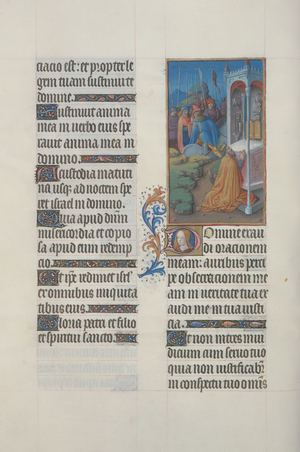 ciacio est: et propter le
gem tuam sustinui te
domine.
Sustinuit anima
mea in verbo eius spe
ravit anima mea in
domino.
A custodia matuti
na usq; ad noctem spe
ret israel in domino.
Quia apud dnm
misericordia et copio
sa apud eum redemp
cio.
Et ipse redimet isrl
ex omnibus iniquita
tibus eius.
Gloria patri et filio
et spiritui sancto.
Domine exau
di orationem
meam: auribus perci
pe obsecrationem me
am in veritate tua ex
audi me in tua iusti
cia.
Et non intres in iu
dicium cum servo tuo
quia non iustificabit
in conspectu tuo omnis